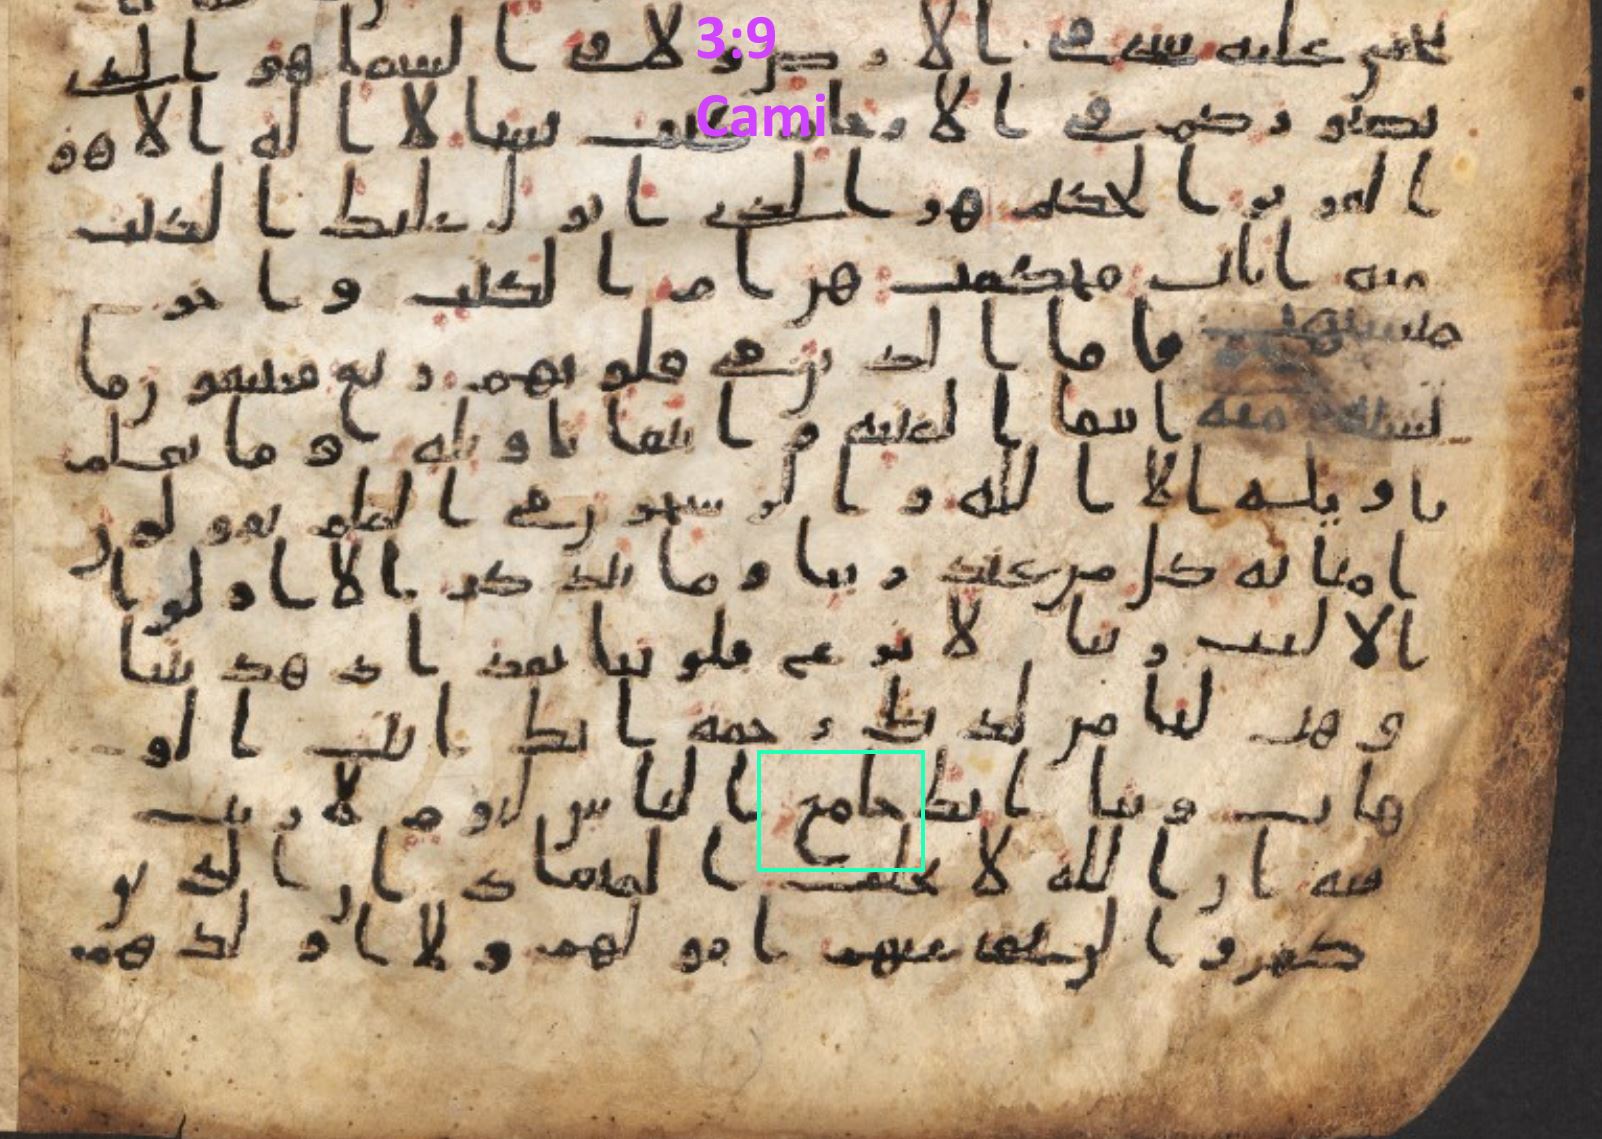 3:9
Cami
يخفى عليه شى فى الارض ولا فى السما هو الذى
يصوركم فى الارحام كيف يشا لا اله الا هو
العزيز الحكيم هو الذى انزل عليك الكتب
منه ايات محكمت هن ام الكتب واخر
متشبهت فاما الذين فى قلوبهم زيغ فيتبعون ما
تشبه منه ابتغا الفتنه وابتغا تاويله وما يعلم
تاويله الا الله والرسخون فى العلم يقولون
امنا به كل من عند ربنا وما يذكر الا اولوا
الالبب ربنا لا تزغ قلوبنا بعد اذ هديتنا
وهب لنا من لدنك رحمه انك انت الو
هاب ربنا انك جامع الناس ليوم لا ريب
فيه ان الله لا يخلف الميعاد ان الذين
كفروا لن تغنى عنهم امولهم ولا اولدهم